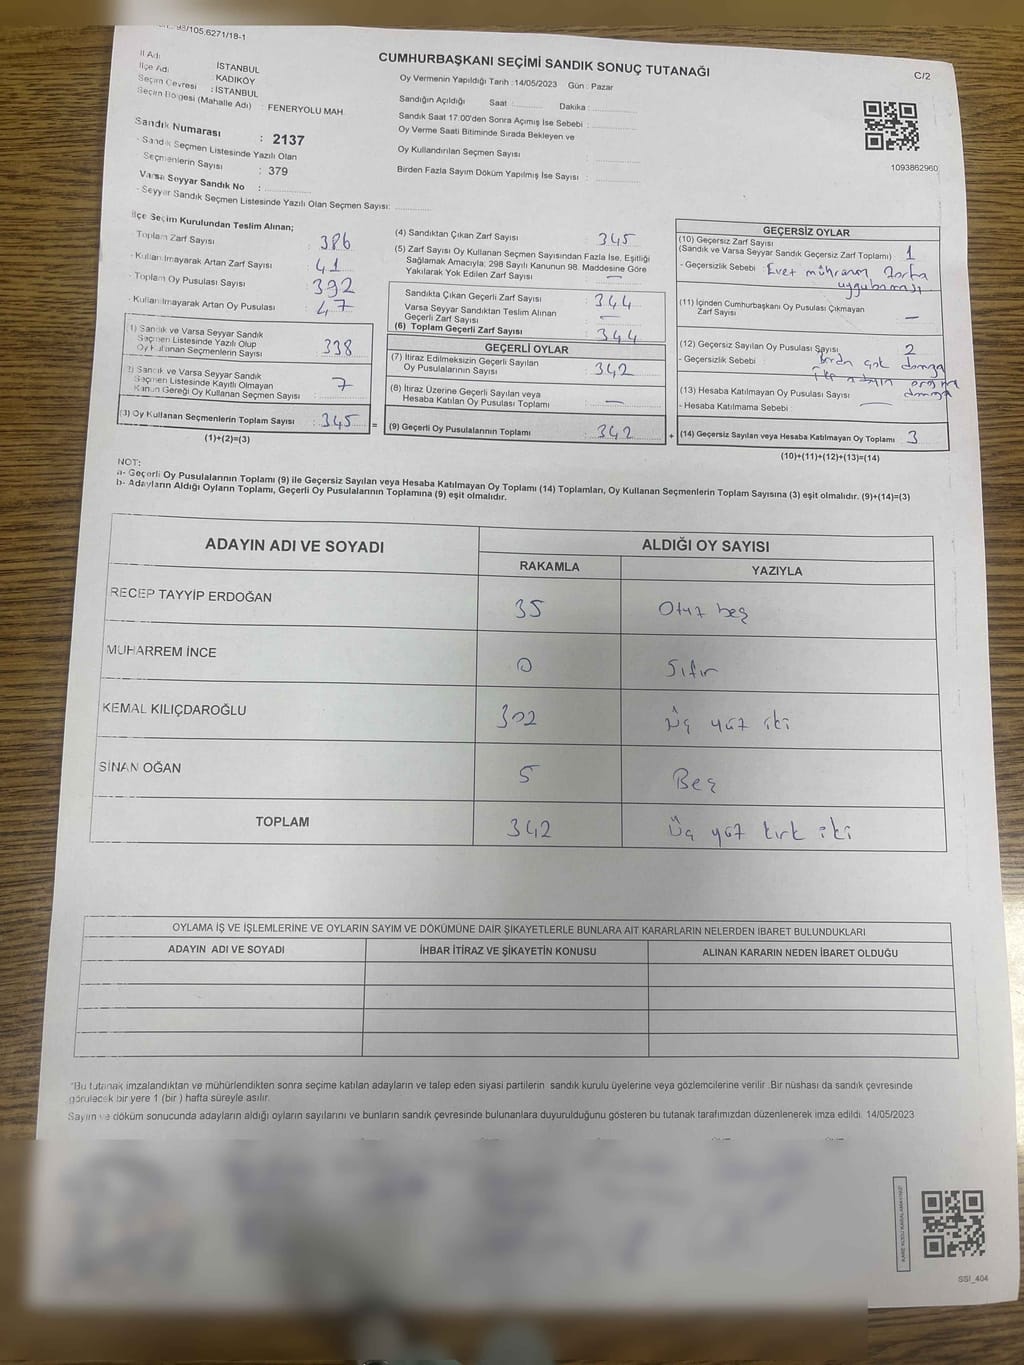 98/105.6271/18-1
CUMHURBAŞKANI SEÇİMİ SANDIK SONUÇ TUTANAĞI
C/2
İl Adı : İSTANBUL
İlçe Adı : KADIKÖY
Seçim Çevresi : İSTANBUL
Seçim Bölgesi (Mahalle Adı) : FENERYOLU MAH.
Sandık Numarası : 2137
- Sandık Seçmen Listesinde Yazılı Olan
Seçmenlerin Sayısı : 379
Varsa Seyyar Sandık No :
- Seyyar Sandık Seçmen Listesinde Yazılı Olan Seçmen Sayısı:
Oy Vermenin Yapıldığı Tarih :14/05/2023 Gün : Pazar
Sandığın Açıldığı Saat : Dakika :
Sandık Saat 17:00'den Sonra Açımış İse Sebebi :
Oy Verme Saati Bitiminde Sırada Bekleyen ve
Oy Kullandırılan Seçmen Sayısı :
Birden Fazla Sayım Döküm Yapılmış İse Sayısı :
1093862960
İlçe Seçim Kurulundan Teslim Alınan;
- Toplam Zarf Sayısı : 386
- Kullanılmayarak Artan Zarf Sayısı : 41
- Toplam Oy Pusulası Sayısı : 392
- Kullanılmayarak Artan Oy Pusulası : 47
(1) Sandık ve Varsa Seyyar Sandık
Seçmen Listesinde Yazılı Olup
Oy Kullanan Seçmenlerin Sayısı : 338
(2) Sandık ve Varsa Seyyar Sandık
Seçmen Listesinde Kayıtlı Olmayan
Kanun Gereği Oy Kullanan Seçmen Sayısı : 7
(3) Oy Kullanan Seçmenlerin Toplam Sayısı : 345 =
(1)+(2)=(3)
(4) Sandıktan Çıkan Zarf Sayısı : 345
(5) Zarf Sayısı Oy Kullanan Seçmen Sayısından Fazla İse, Eşitliği
Sağlamak Amacıyla; 298 Sayılı Kanunun 98. Maddesine Göre
Yakılarak Yok Edilen Zarf Sayısı : —
Sandıkta Çıkan Geçerli Zarf Sayısı : 344
Varsa Seyyar Sandıktan Teslim Alınan
Geçerli Zarf Sayısı : —
(6) Toplam Geçerli Zarf Sayısı : 344
GEÇERLİ OYLAR
(7) İtiraz Edilmeksizin Geçerli Sayılan
Oy Pusulalarının Sayısı : 342
(8) İtiraz Üzerine Geçerli Sayılan veya
Hesaba Katılan Oy Pusulası Toplamı : —
(9) Geçerli Oy Pusulalarının Toplamı : 342 +
GEÇERSİZ OYLAR
(10) Geçersiz Zarf Sayısı
(Sandık ve Varsa Seyyar Sandık Geçersiz Zarf Toplamı) : 1
- Geçersizlik Sebebi : Evet mührünün Zarfa
uygulanması
(11) İçinden Cumhurbaşkanı Oy Pusulası Çıkmayan
Zarf Sayısı : —
(12) Geçersiz Sayılan Oy Pusulası Sayısı : 2
- Geçersizlik Sebebi : Birden çok damga
damga
(13) Hesaba Katılmayan Oy Pusulası Sayısı : —
- Hesaba Katılmama Sebebi :
(14) Geçersiz Sayılan veya Hesaba Katılmayan Oy Toplamı : 3
(10)+(11)+(12)+(13)=(14)
NOT:
a- Geçerli Oy Pusulalarının Toplamı (9) ile Geçersiz Sayılan veya Hesaba Katılmayan Oy Toplamı (14) Toplamları, Oy Kullanan Seçmenlerin Toplam Sayısına (3) eşit olmalıdır. (9)+(14)=(3)
b- Adayların Aldığı Oyların Toplamı, Geçerli Oy Pusulalarının Toplamına (9) eşit olmalıdır.
ADAYIN ADI VE SOYADI
ALDIĞI OY SAYISI
RAKAMLA YAZIYLA
RECEP TAYYİP ERDOĞAN 35 Otuz beş
MUHARREM İNCE 0 Sıfır
KEMAL KILIÇDAROĞLU 302 Üç yüz iki
SİNAN OĞAN 5 Beş
TOPLAM 342 Üç yüz kırk iki
OYLAMA İŞ VE İŞLEMLERİNE VE OYLARIN SAYIM VE DÖKÜMÜNE DAİR ŞİKAYETLERLE BUNLARA AİT KARARLARIN NELERDEN İBARET BULUNDUKLARI
ADAYIN ADI VE SOYADI İHBAR İTİRAZ VE ŞİKAYETİN KONUSU ALINAN KARARIN NEDEN İBARET OLDUĞU
*Bu tutanak imzalandıktan ve mühürlendikten sonra seçime katılan adayların ve talep eden siyasi partilerin sandık kurulu üyelerine veya gözlemcilerine verilir. Bir nüshası da sandık çevresinde
görülecek bir yere 1 (bir ) hafta süreyle asılır.
Sayım ve döküm sonucunda adayların aldığı oyların sayılarını ve bunların sandık çevresinde bulunanlara duyurulduğunu gösteren bu tutanak tarafımızdan düzenlenerek imza edildi. 14/05/2023
SSİ_404